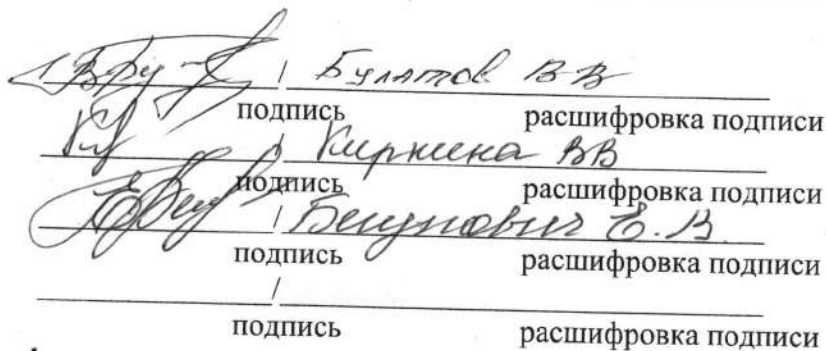 / Булатов В В
подпись расшифровка подписи
/ Киркина ВВ
подпись расшифровка подписи
/ Е. В.
подпись расшифровка подписи
/
подпись расшифровка подписи